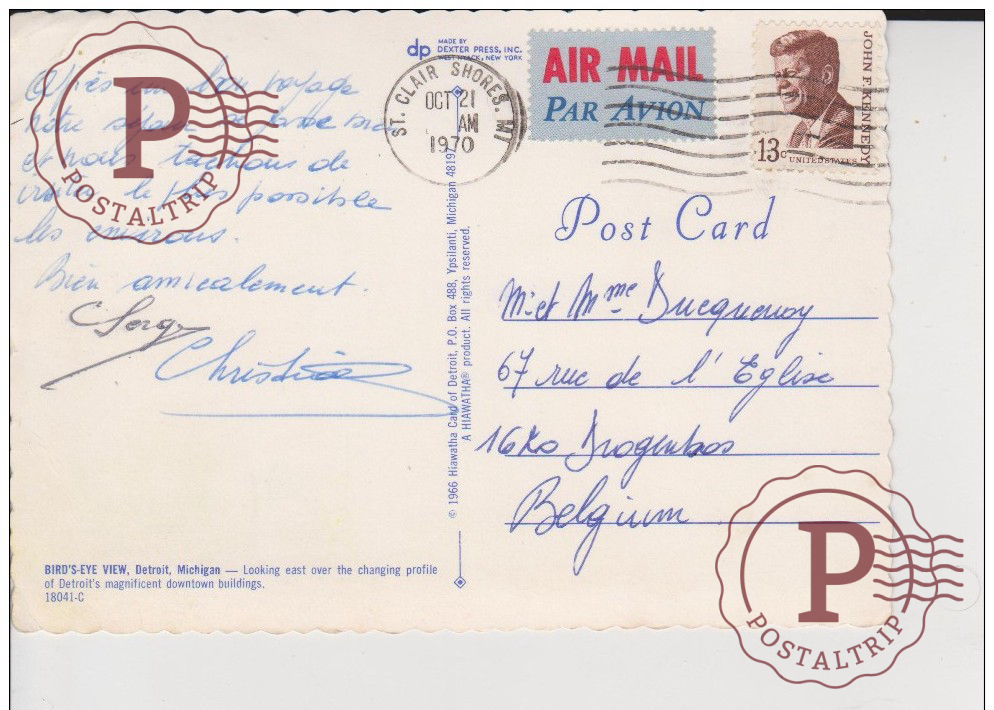 Après un bon voyage
notre séjour se passe
et nous tachons de
visiter le plus possible
les environs.
Bien amicalement.
Serge
Christiane
BIRD'S-EYE VIEW, Detroit, Michigan — Looking east over the changing profile
of Detroit's magnificent downtown buildings.
18041-C
dp MADE BY
DEXTER PRESS, INC.
WEST NYACK, NEW YORK
ST. CLAIR SHORES, MI
OCT 21
AM
1970
AIR MAIL
PAR AVION
JOHN F. KENNEDY
13c UNITED STATES
© 1966 Hiawatha Card of Detroit, P.O. Box 488, Ypsilanti, Michigan 48197
A HIAWATHA® product. All rights reserved.
Post Card
Mr et Mme Ducquenoy
67 rue de l'Eglise
16Ko Drogenbos
Belgium
P
POSTALTRIP
P
POSTALTRIP